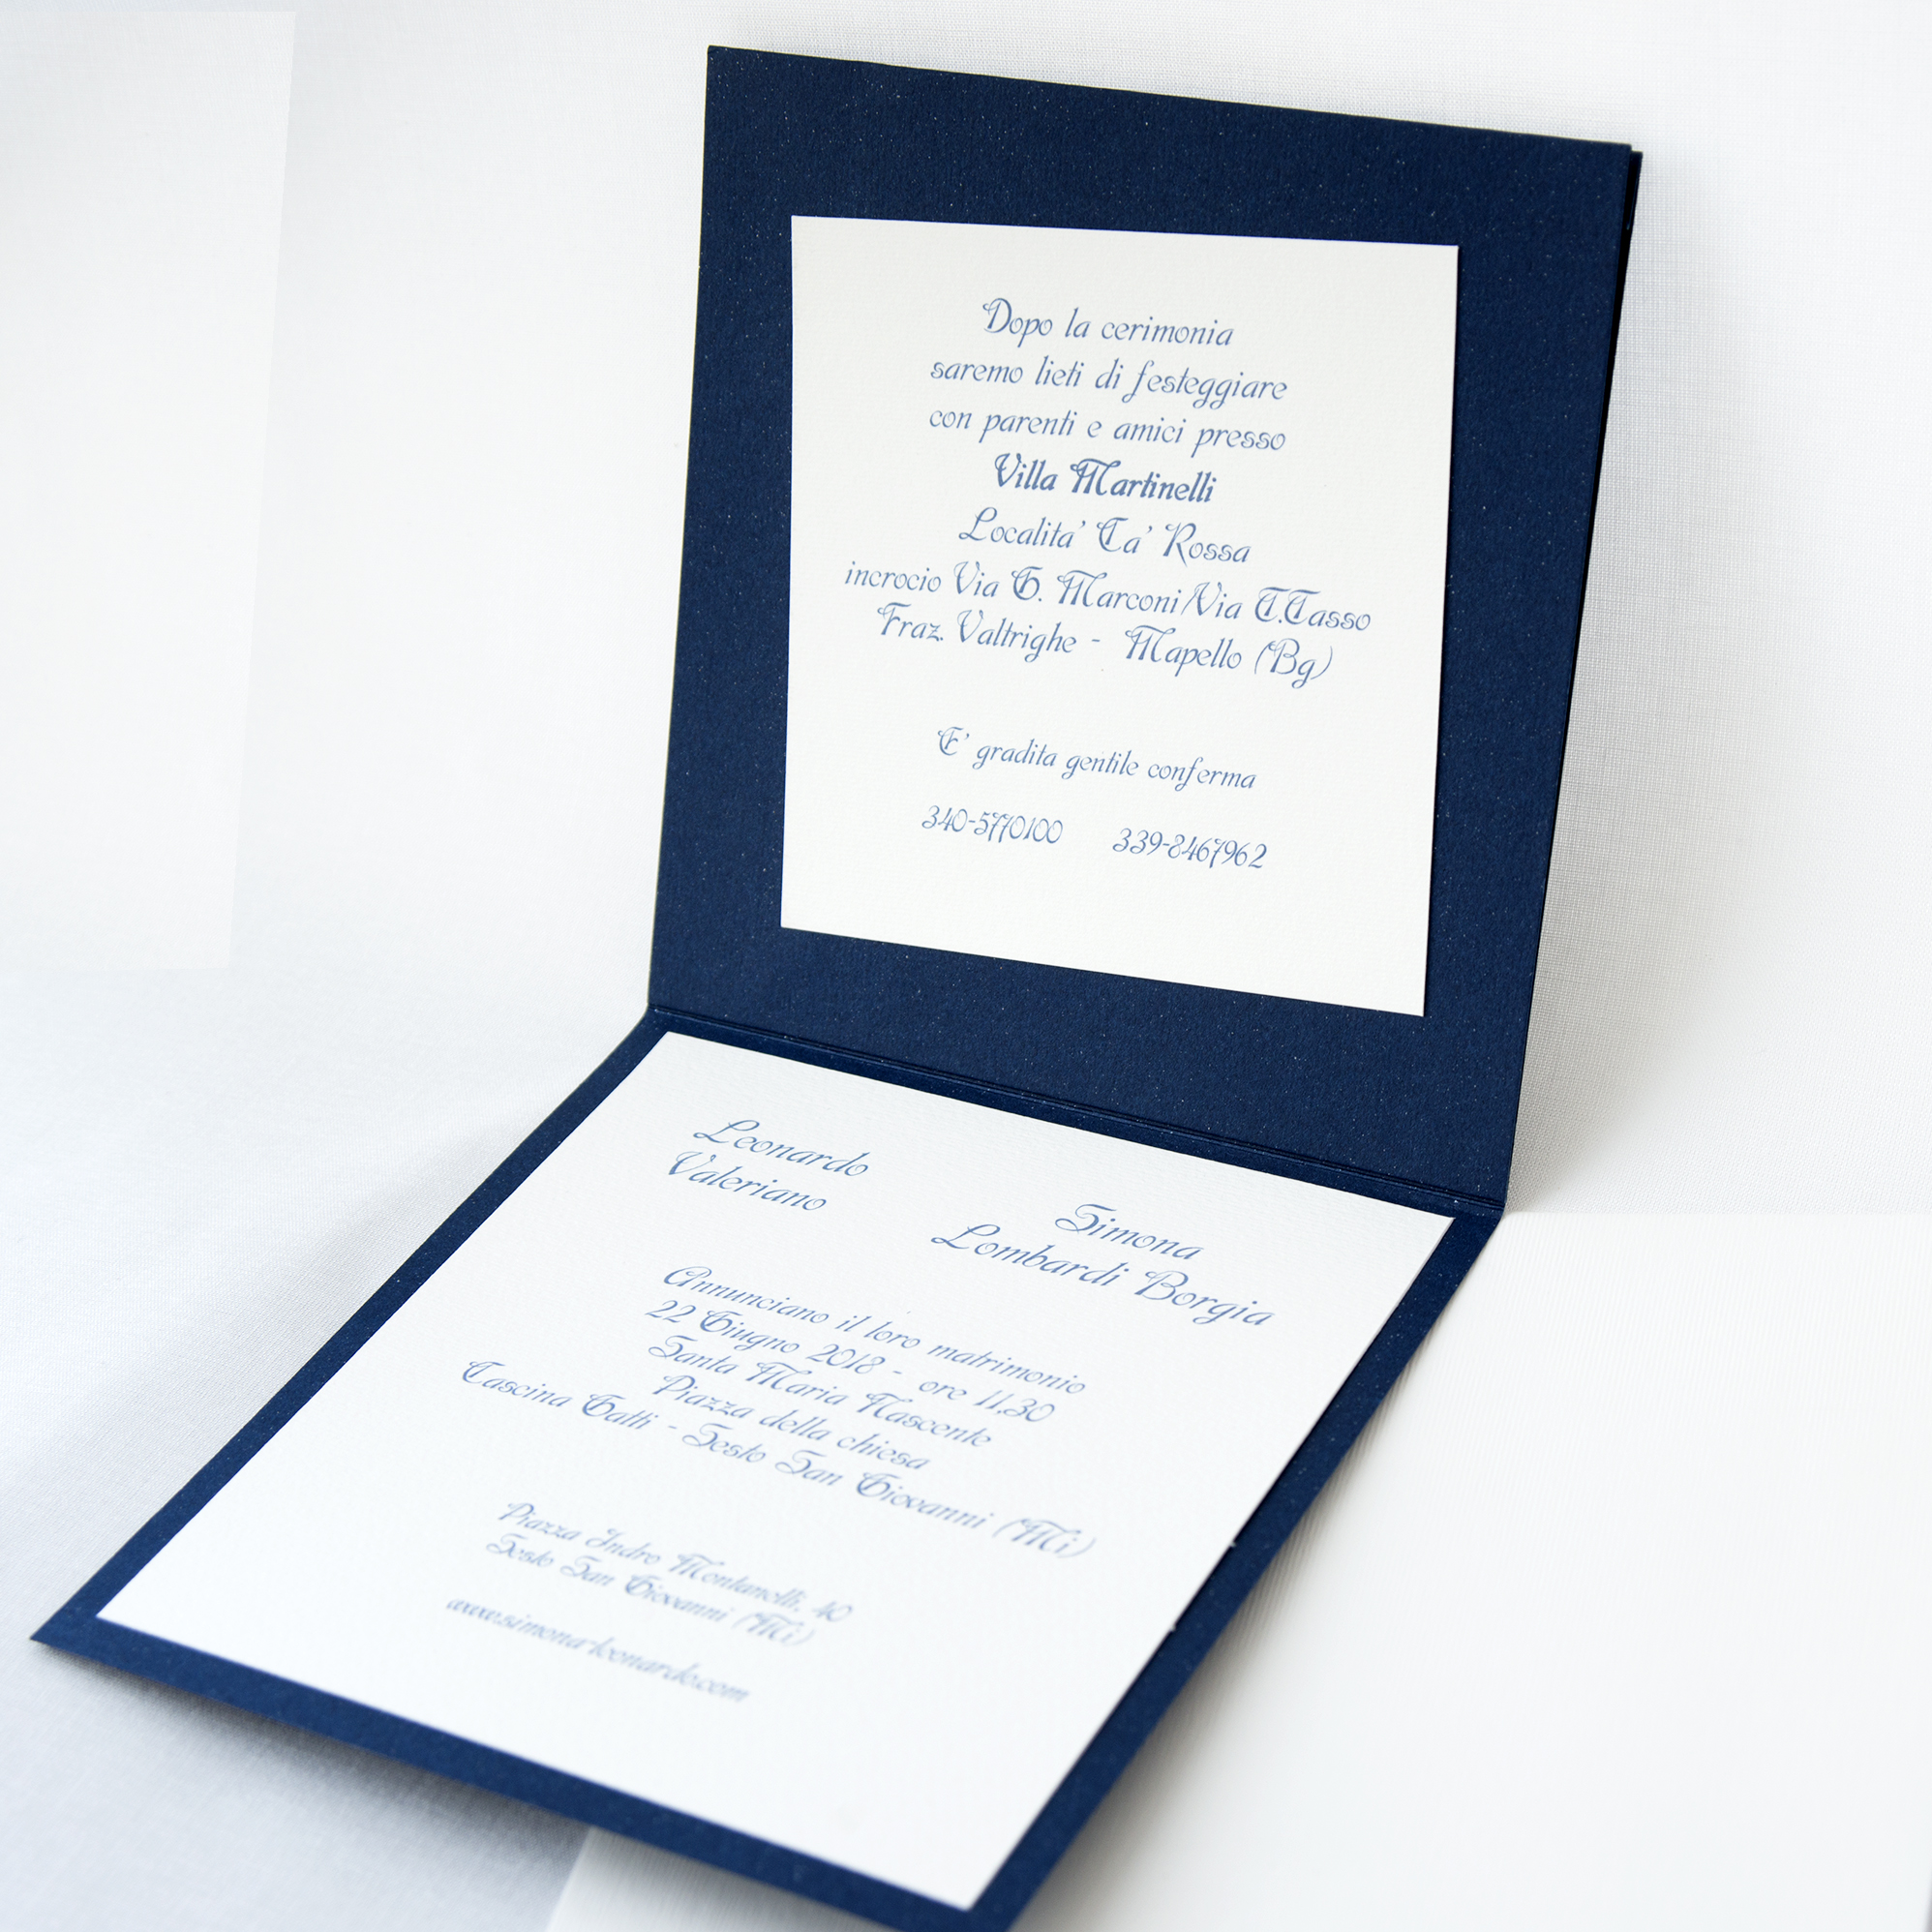 Dopo la cerimonia
saremo lieti di festeggiare
con parenti e amici presso
Villa Martinelli
Localita' Ca' Rossa
incrocio Via G. Marconi/Via T.Tasso
Fraz. Valtrighe - Mapello (Bg)
E' gradita gentile conferma
340-5770100 339-8467962
Leonardo
Valeriano
Simona
Lombardi Borgia
Annunciano il loro matrimonio
22 Giugno 2018 - ore 11,30
Santa Maria Nascente
Piazza della chiesa
Cascina Gatti - Sesto San Giovanni (Mi)
Piazza Indro Montanelli, 40
Sesto San Giovanni (Mi)
www.simona-leonardo.com